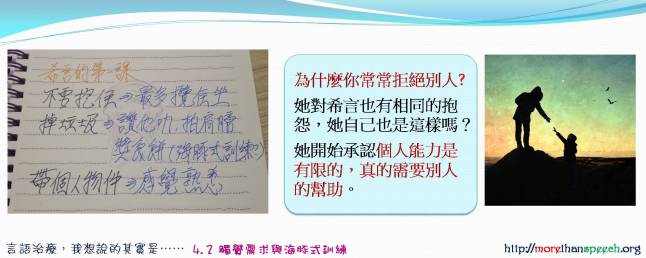 希言的第一課
不要抱佢⇒最多攬住坐
掉垃圾⇒讓他叫, 拍肩膊
獎家餅(海豚式訓練?)
帶個人物件⇒感覺熟悉
為什麼你常常拒絕別人?
她對希言也有相同的抱
怨，她自己也是這樣嗎？
她開始承認個人能力是
有限的，真的需要別人
的幫助。
言語治療，我想說的其實是…… 4.2 觸覺需求與海豚式訓練 http://morethanspeech.org